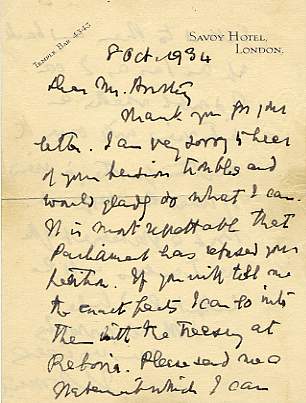 TEMPLE BAR 4343
SAVOY HOTEL,
LONDON.
8 Oct. 1934
Dear Mr.
Thank you for your
letter. I am very sorry to hear
of your pension troubles and
would gladly do what I can.
It is most regrettable that
Parliament has refused your
petition. If you will tell me
the exact facts I can go into
them with the Treasury at
Please send me a
statement which I can